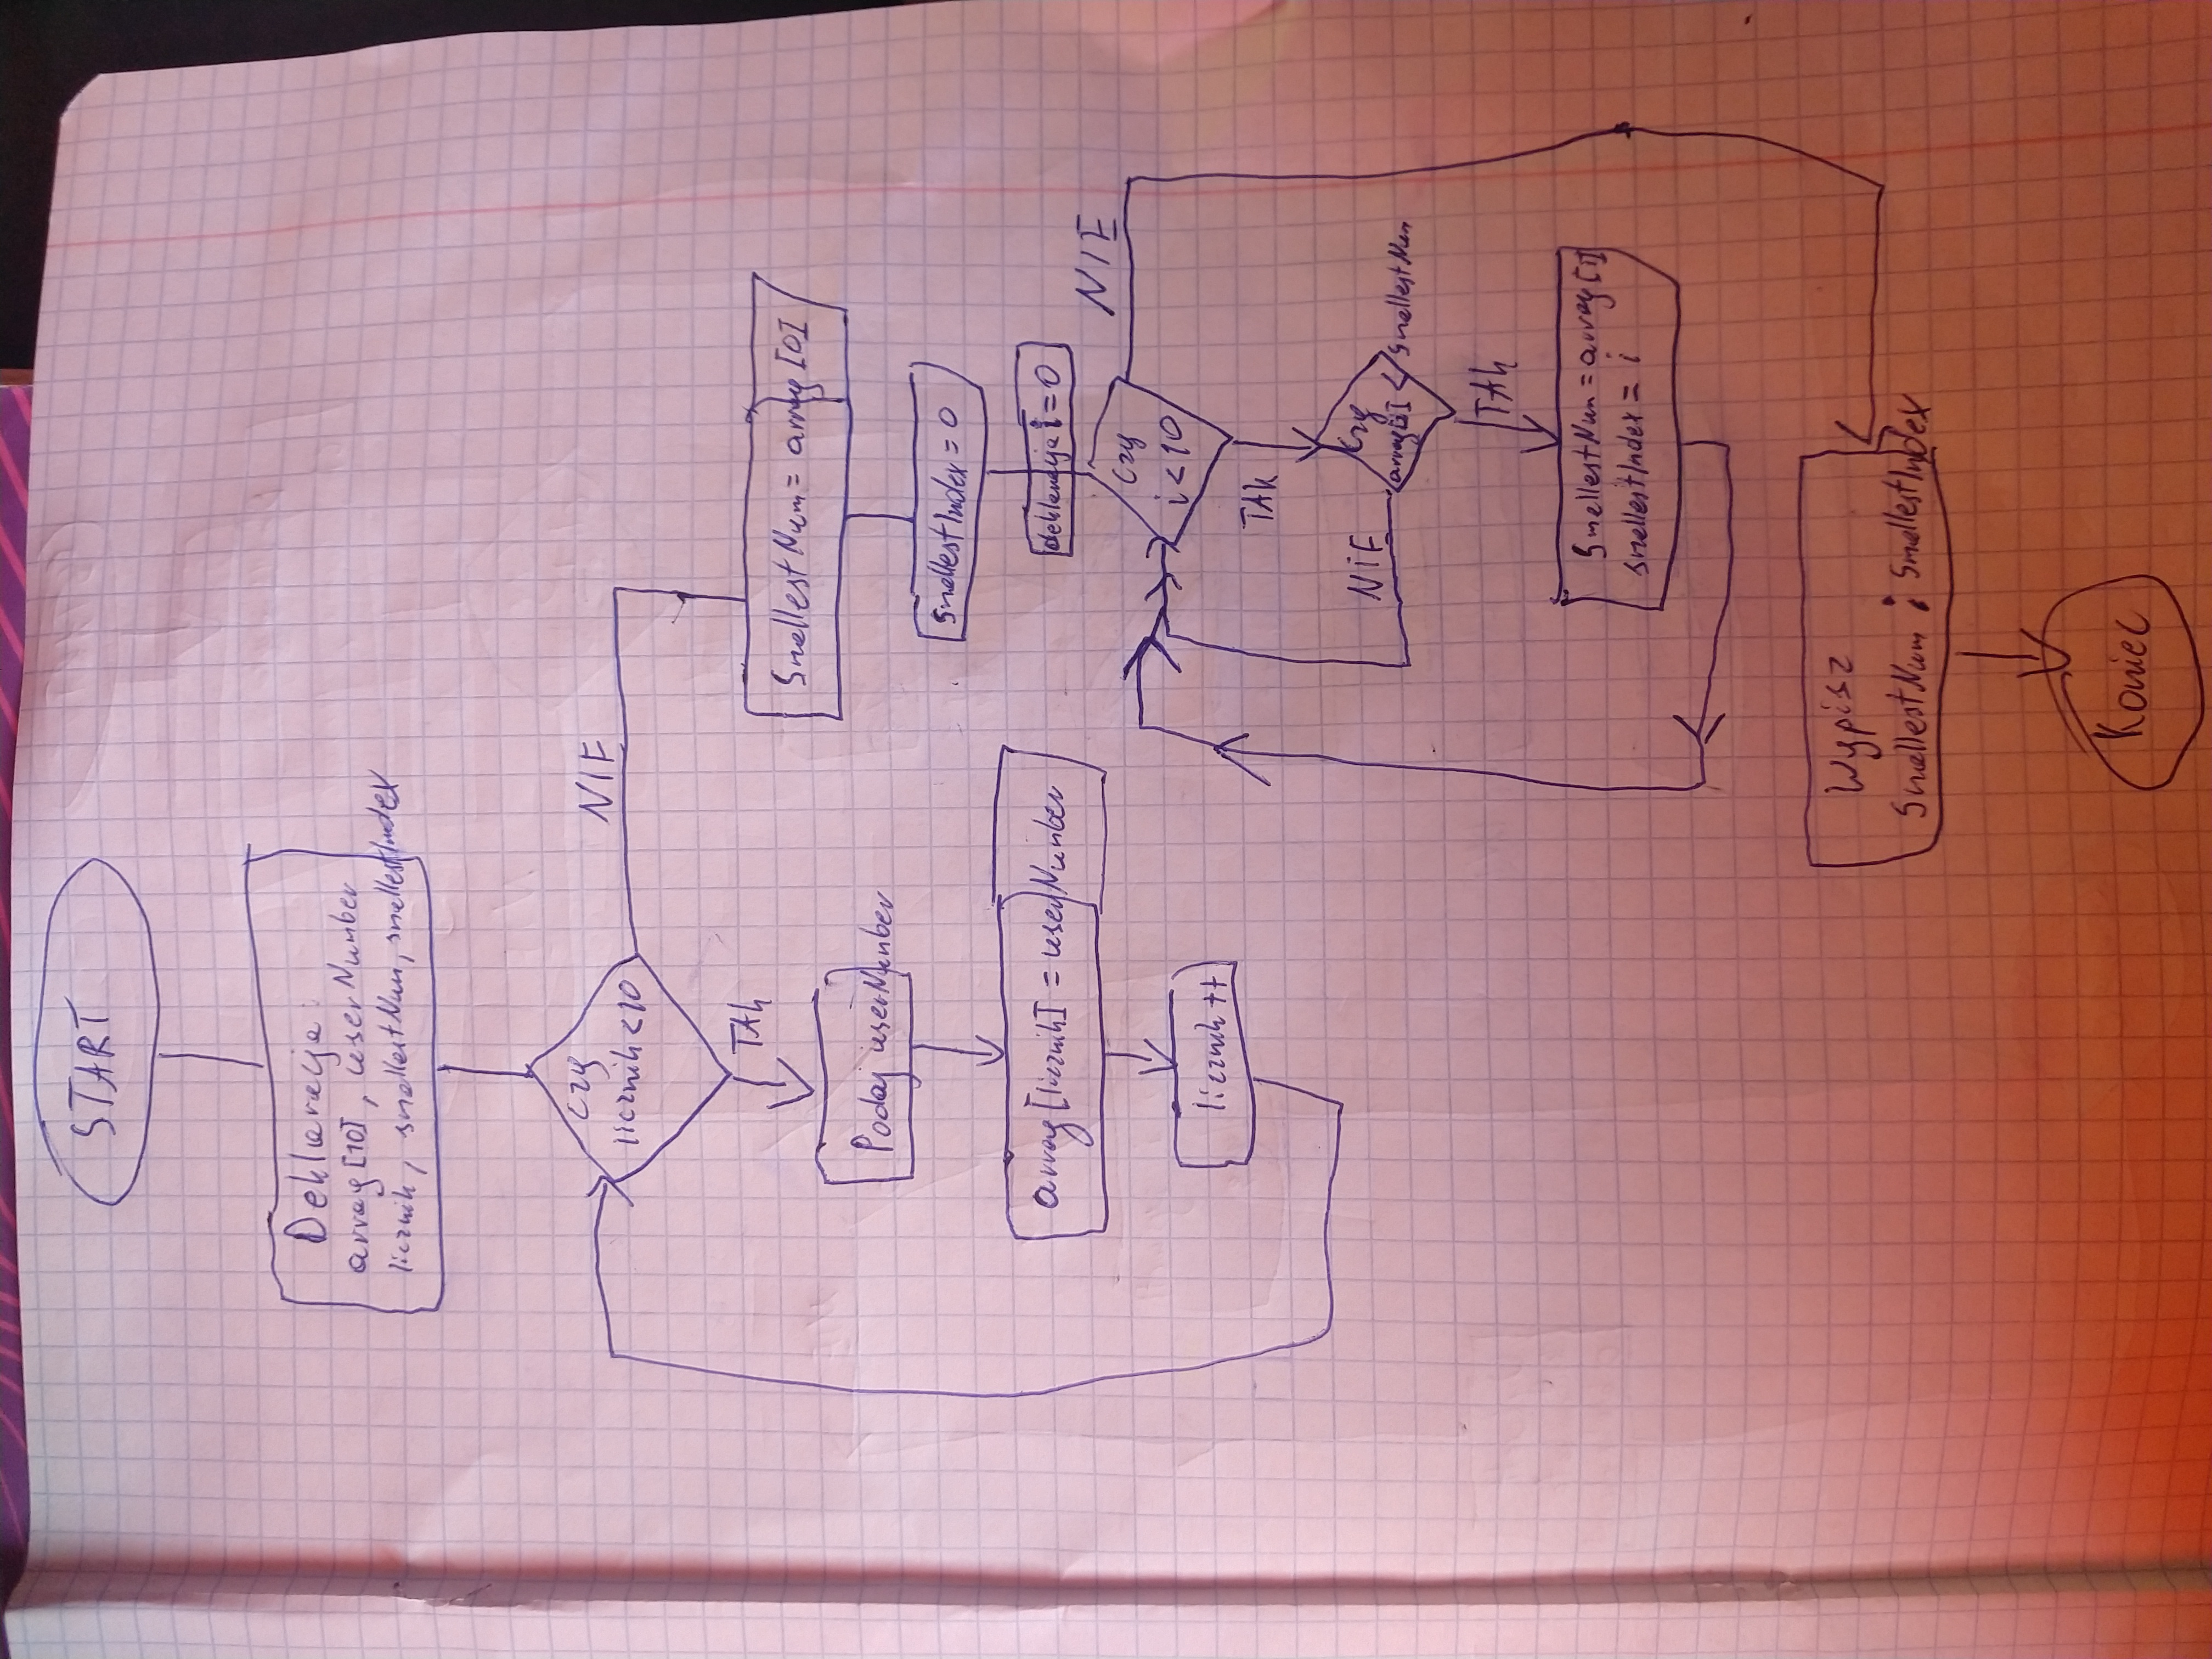 START
Deklaracja:
array[10], userNumber
licznik, smallestNum, smallestIndex
Czy
licznik<10
NIE
TAK
Podaj userNumber
array[licznik] = userNumber
licznik++
SmallestNum = array[0]
SmallestIndex = 0
deklaracja i=0
Czy
i<10
NIE
TAK
Czy
array[i] < SmallestNum
NIE
TAK
SmallestNum = array[i]
smallestIndex = i
Wypisz
SmallestNum i SmallestIndex
Koniec